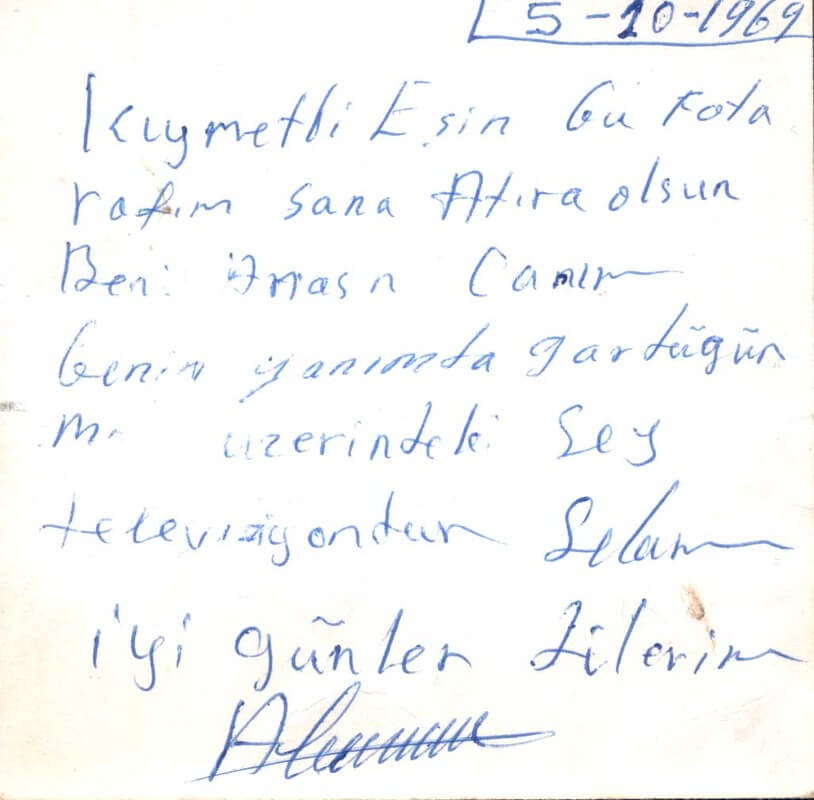 5-10-1969
Kıymetli Eşin bu Foto
rafım sana Atıra olsun
Beni Canım
benim yanımda gardügün
üzerindeki Şey
televiziyondur Selam
iyi günler dilerim